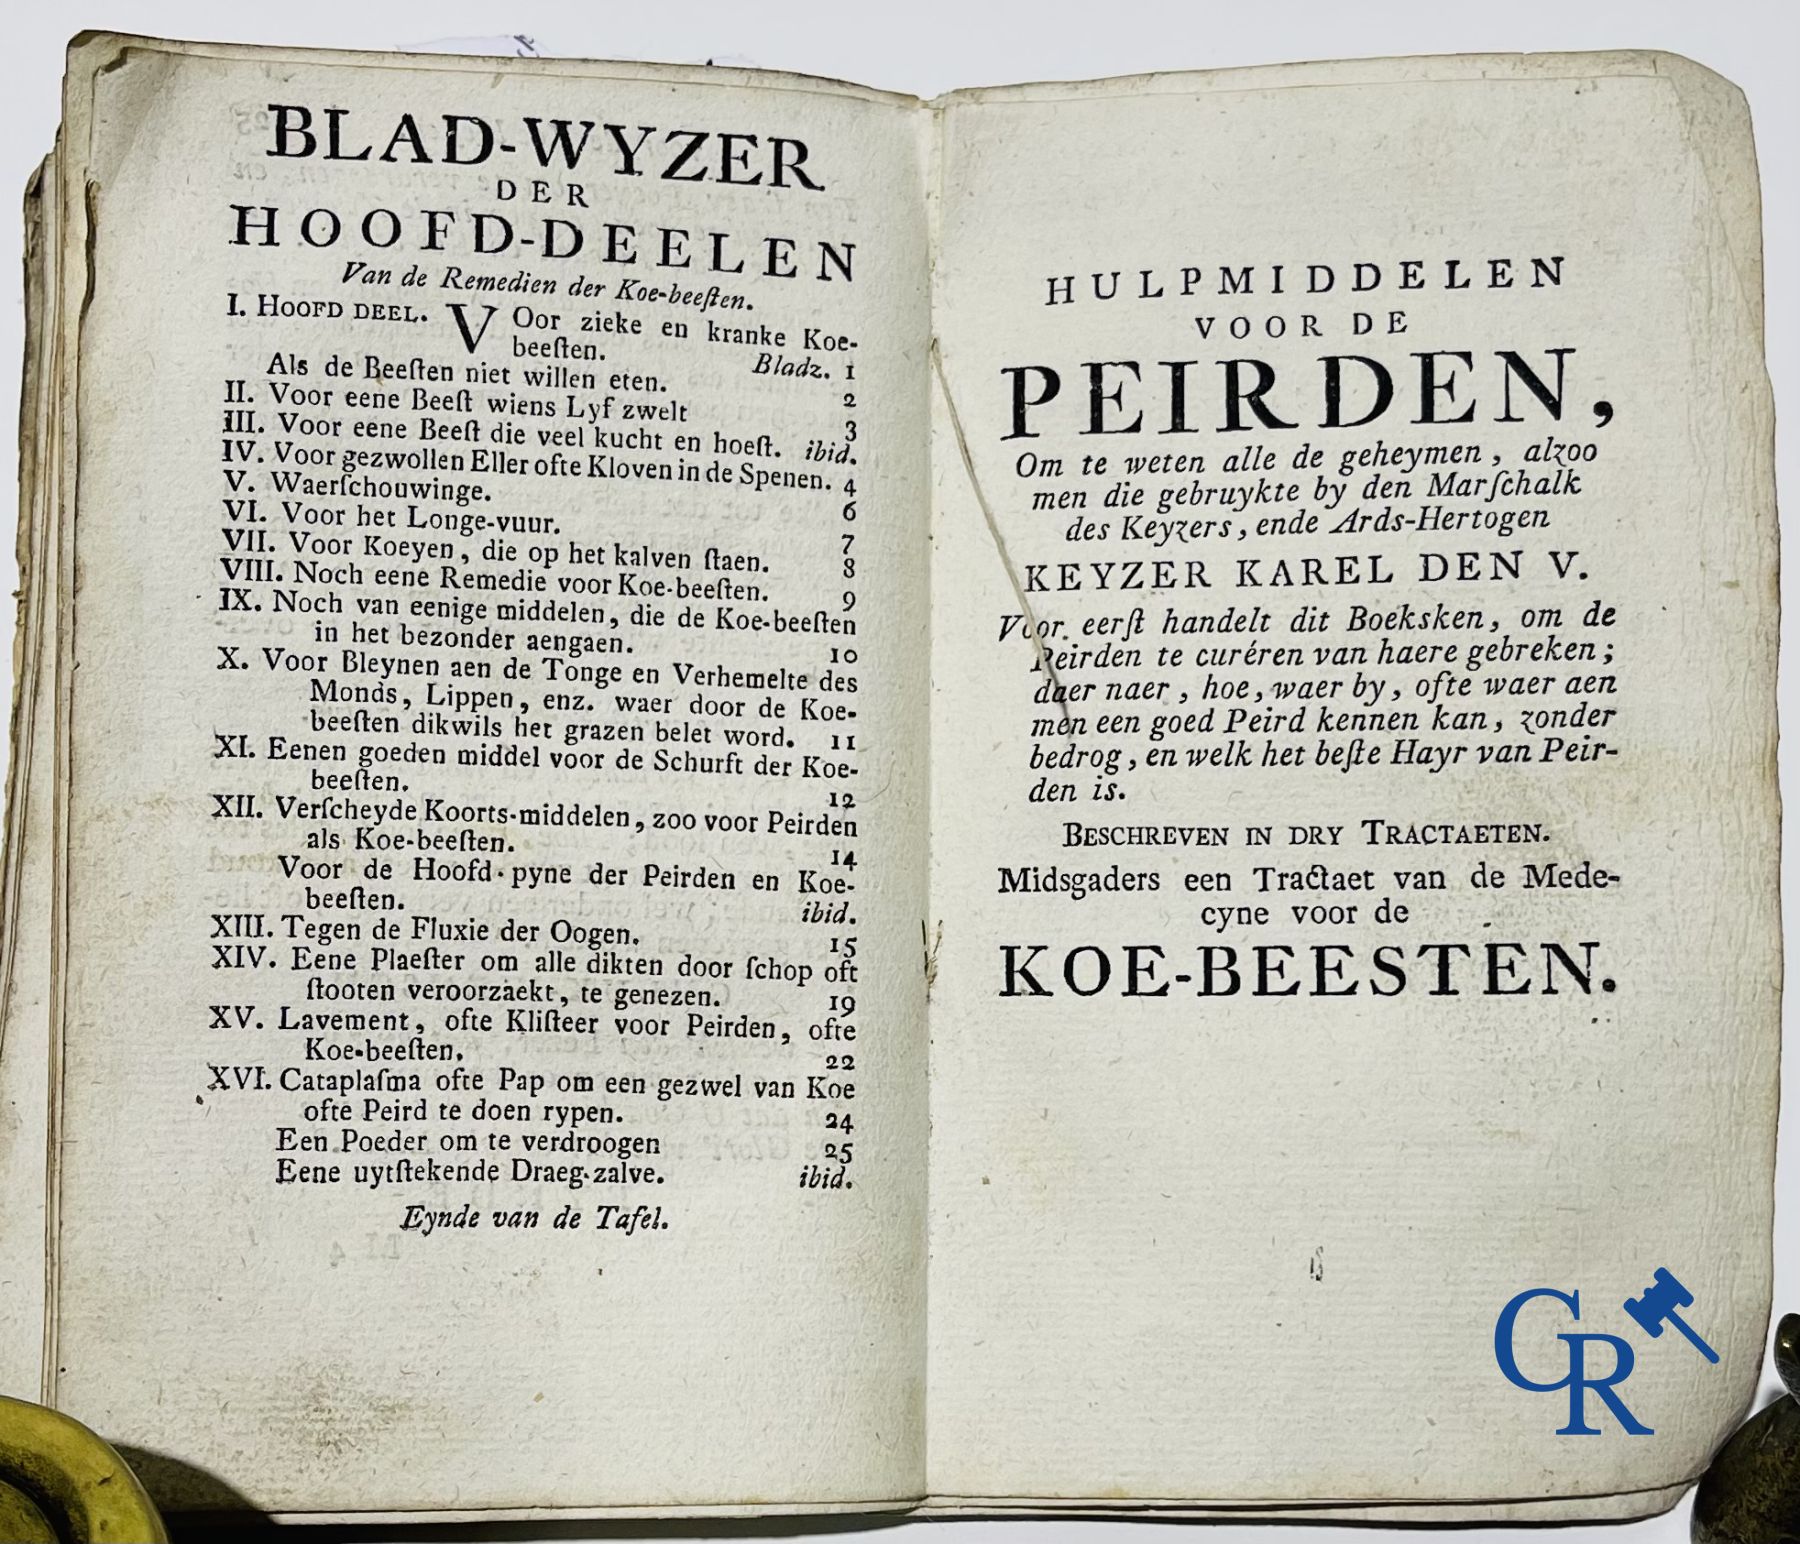 BLAD-WYZER
DER
HOOFD-DEELEN
Van de Remedien der Koe-beeſten.
I. HOOFD DEEL. VOor zieke en kranke Koe-
beeſten. Bladz. 1
Als de Beeſten niet willen eten. 2
II. Voor eene Beeſt wiens Lyf zwelt 3
III. Voor eene Beeſt die veel kucht en hoeſt. ibid.
IV. Voor gezwollen Eller ofte Kloven in de Spenen. 4
V. Waerſchouwinge. 6
VI. Voor het Longe-vuur. 7
VII. Voor Koeyen, die op het kalven ſtaen. 8
VIII. Noch eene Remedie voor Koe-beeſten. 9
IX. Noch van eenige middelen, die de Koe-beeſten
in het bezonder aengaen. 10
X. Voor Bleynen aen de Tonge en Verhemelte des
Monds, Lippen, enz. waer door de Koe-
beeſten dikwils het grazen belet word. 11
XI. Eenen goeden middel voor de Schurft der Koe-
beeſten. 12
XII. Verſcheyde Koorts-middelen, zoo voor Peirden
als Koe-beeſten. 14
Voor de Hoofd-pyne der Peirden en Koe-
beeſten. ibid.
XIII. Tegen de Fluxie der Oogen. 15
XIV. Eene Plaeſter om alle dikten door ſchop oft
ſtooten veroorzaekt, te genezen. 19
XV. Lavement, ofte Kliſteer voor Peirden, ofte
Koe-beeſten. 22
XVI. Cataplaſma ofte Pap om een gezwel van Koe
ofte Peird te doen rypen. 24
Een Poeder om te verdroogen 25
Eene uytſtekende Draeg-zalve. ibid.
Eynde van de Tafel.
HULPMIDDELEN
VOOR DE
PEIRDEN,
Om te weten alle de geheymen, alzoo
men die gebruykte by den Marſchalk
des Keyzers, ende Ards-Hertogen
KEYZER KAREL DEN V.
Voor eerſt handelt dit Boeksken, om de
Peirden te curéren van haere gebreken;
daer naer, hoe, waer by, ofte waer aen
men een goed Peird kennen kan, zonder
bedrog, en welk het beſte Hayr van Peir-
den is.
BESCHREVEN IN DRY TRACTAETEN.
Midsgaders een Tractaet van de Mede-
cyne voor de
KOE-BEESTEN.
CR